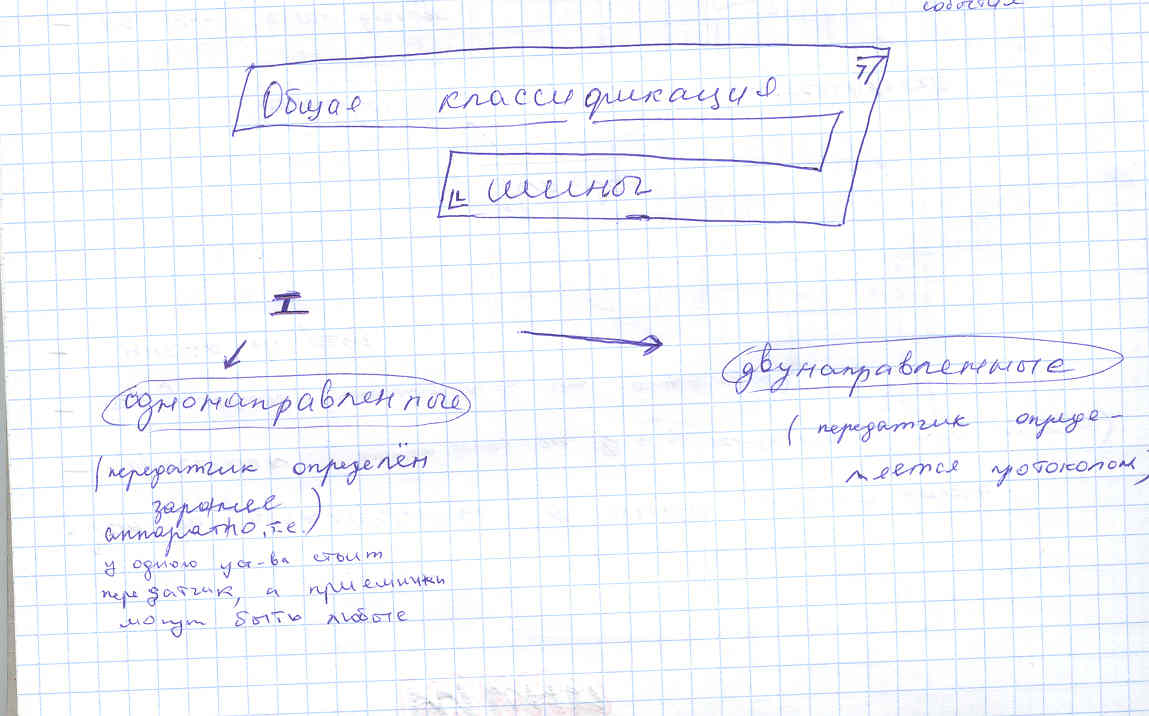 события
Общая классификация
шины
I
однонаправленные
(передатчик определён
заранее
аппаратно, т.е.)
у одного уст-ва стоит
передатчик, а приемники
могут быть любые
двунаправленные
(передатчик опреде-
ляется протоколом)